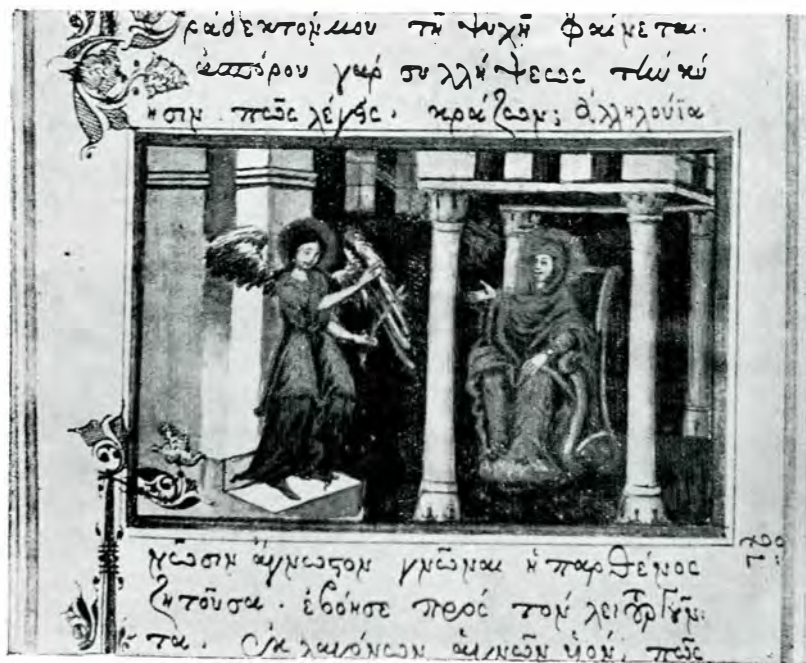 ράδεκτόν μου τῇ ψυχῇ φαίνεται.
ἀσπόρου γὰρ συλλήψεως τὴν κύ
ησιν πῶς λέγεις. κράζων; ἀλληλούϊα
Γνῶσιν ἄγνωστον γνῶναι ἡ παρθένος
ζητοῦσα. ἐβόησε πρὸς τὸν λειτουργοῦν
τα. Ἐκ λαγόνων ἁγνῶν υἱόν, πῶς